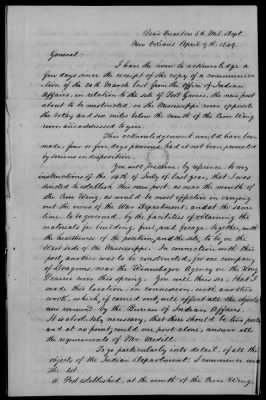 Head Quarters 6th Mil. Dept.
New Orleans April 9th 1849.
General:
I have the honor to acknowledge a
few days since the receipt of the copy of a communica
tion of the 20th March last from the Office of Indian
Affairs, in relation to the site of Fort Gaines, the new post
about to be constructed, on the Mississippi river opposite
the Nokay and six miles below the mouth of the Crow Wing
river, addressed to you.
This acknowledgement would have been
made, four or five days previous had it not been prevented
by serious indisposition.
You will perceive by reference to my
instructions of the 14th of July of last year, that I was
directed to establish this new post, as near the mouth of
the Crow Wing, as would be most effective in carrying
out the views of the War Department, and at the same
time to be governed by the facilities of obtaining the
materials for building, fuel, and forage, together with
the healthiness of the position, and the site, to be on the
West side of the Mississippi. In connection with this
post, another was to be constructed, for one company
of Dragoons near the Winnebago Agency on the Long
Prairie river this spring. You will then see, that I
made this location, in connexion with another
work, which, if carried out, will effect all the objects
now by the Bureau of Indian Affairs.
It is absolutely necessary, that there should be two posts,
and at no point, could one post alone, answer all
the requirements of Mr. Medill.
To go particularly into detail, of all the
objects of the Indian Department I commence
the 1st.
A Post established, at the mouth of the Crow Wing,